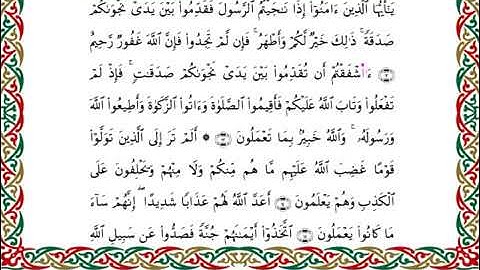 يَـٰٓأَيُّهَا ٱلَّذِينَ ءَامَنُوٓا۟ إِذَا نَـٰجَيْتُمُ ٱلرَّسُولَ فَقَدِّمُوا۟ بَيْنَ يَدَىْ نَجْوَىٰكُمْ
صَدَقَةً ۚ ذَٰلِكَ خَيْرٌ لَّكُمْ وَأَطْهَرُ ۚ فَإِن لَّمْ تَجِدُوا۟ فَإِنَّ ٱللَّهَ غَفُورٌ رَّحِيمٌ
ءَأَشْفَقْتُمْ أَن تُقَدِّمُوا۟ بَيْنَ يَدَىْ نَجْوَىٰكُمْ صَدَقَـٰتٍ ۚ فَإِذْ لَمْ
تَفْعَلُوا۟ وَتَابَ ٱللَّهُ عَلَيْكُمْ فَأَقِيمُوا۟ ٱلصَّلَوٰةَ وَءَاتُوا۟ ٱلزَّكَوٰةَ وَأَطِيعُوا۟ ٱللَّهَ
وَرَسُولَهُۥ ۚ وَٱللَّهُ خَبِيرٌۢ بِمَا تَعْمَلُونَ ۞ أَلَمْ تَرَ إِلَى ٱلَّذِينَ تَوَلَّوْا۟
قَوْمًا غَضِبَ ٱللَّهُ عَلَيْهِم مَّا هُم مِّنكُمْ وَلَا مِنْهُمْ وَيَحْلِفُونَ عَلَى
ٱلْكَذِبِ وَهُمْ يَعْلَمُونَ أَعَدَّ ٱللَّهُ لَهُمْ عَذَابًا شَدِيدًا ۖ إِنَّهُمْ سَآءَ
مَا كَانُوا۟ يَعْمَلُونَ ٱتَّخَذُوٓا۟ أَيْمَـٰنَهُمْ جُنَّةً فَصَدُّوا۟ عَن سَبِيلِ ٱللَّهِ